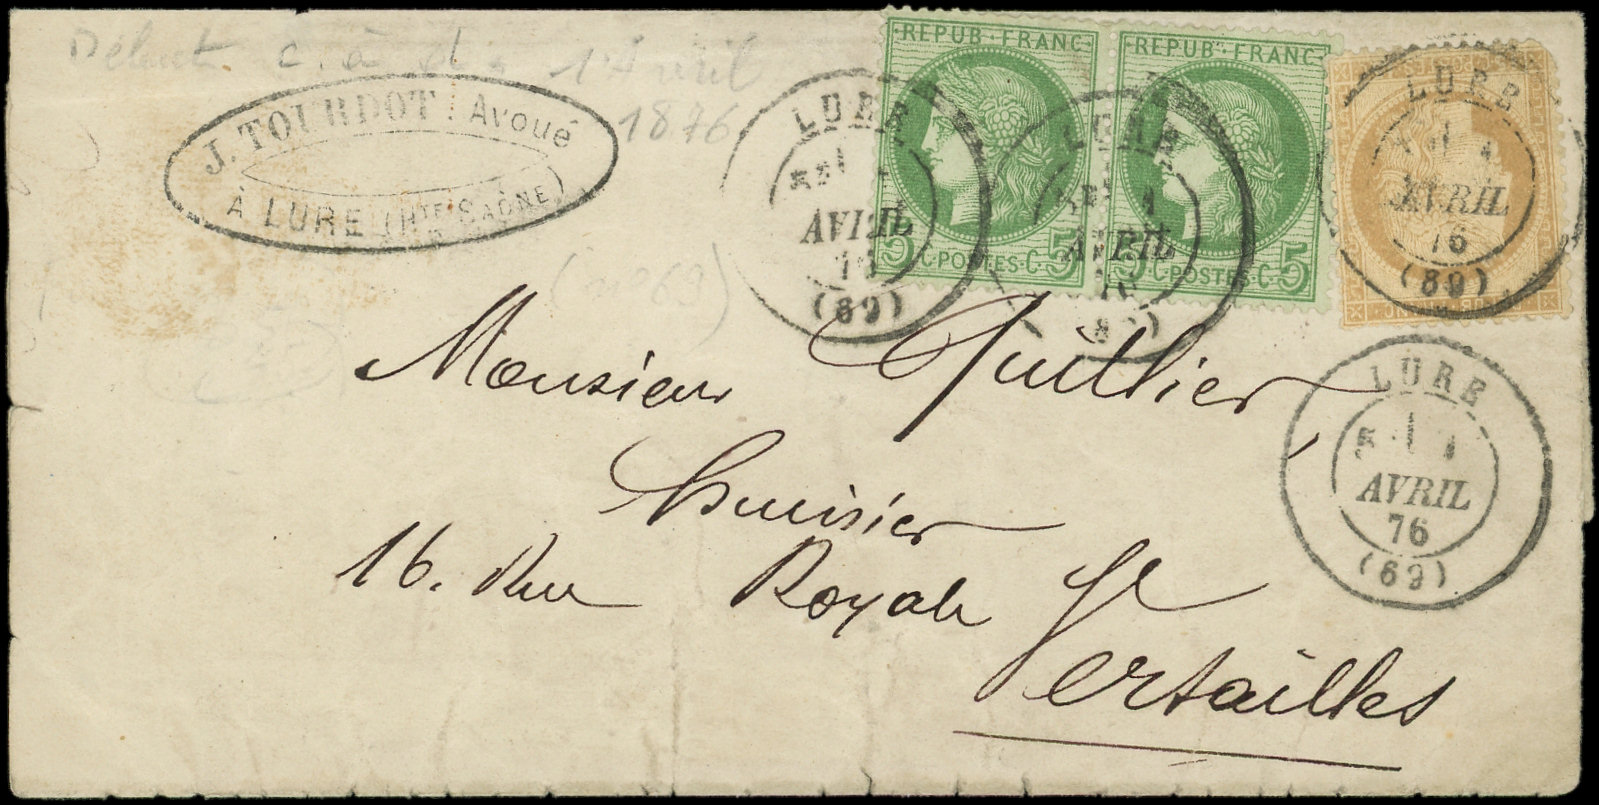 Début c. à d. 1er Avril
1876
J. TOURDOT Avoué
À LURE (HTE SAÔNE)
REPUB · FRANC
5 C · POSTES · C · 5
REPUB · FRANC
5 C · POSTES · C · 5
LURE
AVRIL
(69)
LURE
AVRIL
LURE
AVRIL
76
(69)
LURE
AVRIL
76
(69)
(n° 69)
Monsieur Quillier
huissier
16. Rue Royale
Versailles